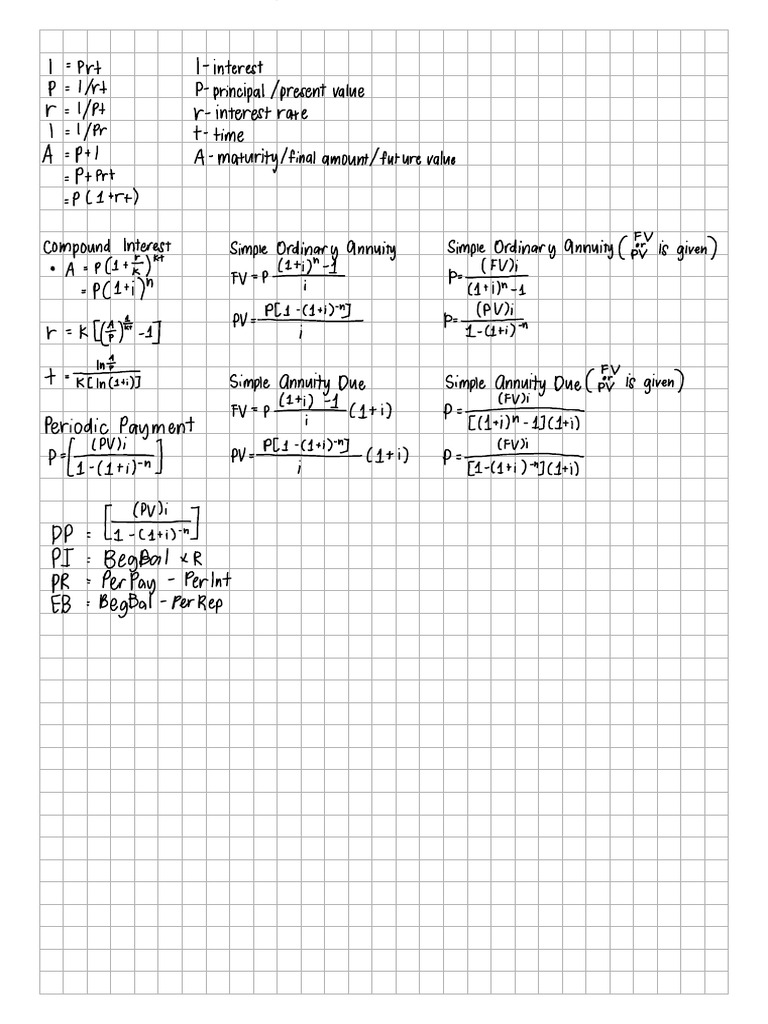 I = Prt I - interest
P = I/rt P - principal/present value
r = I/Pt r - interest rate
I = I/Pr t - time
A = P+I A - maturity/final amount/future value
= P+Prt
= P(1+rt)
Compound Interest
• A = P(1+r/K)^Kt
= P(1+i)^n
r = K[(A/P)^1/Kt -1]
t = ln A/P / K[ln(1+i)]
Periodic Payment
P=[(PV)i / 1-(1+i)^-n]
Simple Ordinary Annuity
FV = P (1+i)^n -1 / i
PV = P[1-(1+i)^-n] / i
Simple Annuity Due
FV = P (1+i) -1 / i (1+i)
PV = P[1-(1+i)^-n] / i (1+i)
Simple Ordinary Annuity (FV or PV is given)
P= (FV)i / (1+i)^n -1
P= (PV)i / 1-(1+i)^-n
Simple Annuity Due (FV or PV is given)
P= (FV)i / [(1+i)^n -1](1+i)
P= (FV)i / [1-(1+i)^-n](1+i)
DP = [(PV)i / 1-(1+i)^-n]
PI = BegBal x R
PR = PerPay - PerInt
EB = BegBal - PerRep